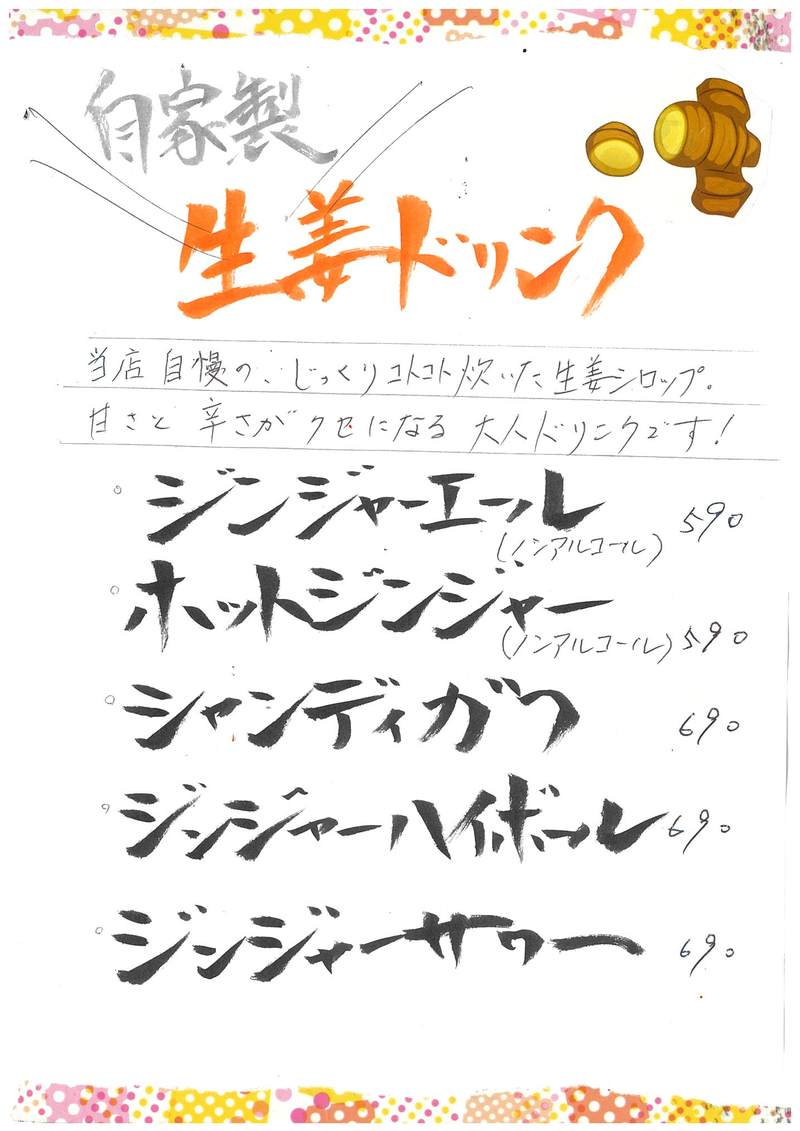 自家製
生姜ドリンク
当店自慢の、じっくりコトコト炊いた生姜シロップ。
甘さと辛さがクセになる大人ドリンクです!
○ ジンジャーエール 590
(ノンアルコール)
○ ホットジンジャー 590
(ノンアルコール)
○ シャンディガフ 690
○ ジンジャーハイボール 690
○ ジンジャーサワー 690